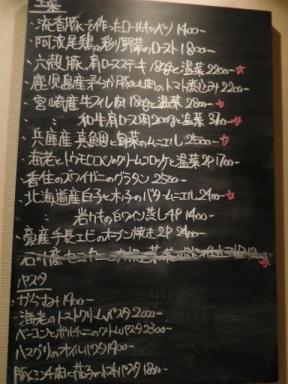 主菜
・流香豚で作ったロールキャベツ 1800-
・阿波尾鶏と彩り野菜のロースト 1800-
・六穀豚 肩ロースステキ 180gと温菜 2200-☆
・鹿児島産 豚と肉のトマト煮込み 2200
・宮崎産牛フィレ肉 180gと温菜 2800-☆
・〃 和牛肩ロース肉200gと温菜 3600-☆
・兵庫産 真鯛と白菜のムニエル 2500-☆
・海老とトウモロコシのクリームコロッケと温菜 2P 1700-
・香住のズワイガニのグラタン 2500-
・北海道産白子と木ノ子のバタームニエル 2400-☆
・〃 岩カキの白ワイン蒸し 4P 1400-
・豪産手長エビのオーブン焼き 2P 2400-
パスタ
・からすみ 1900-
・海老のトマトクリームパスタ 2000-
・ベーコンとポルチーニのクリームパスタ 2300-
・ハマグリのオイルパスタ 1900-
・豚ミンチ肉と茄子のトマトパスタ 1800-